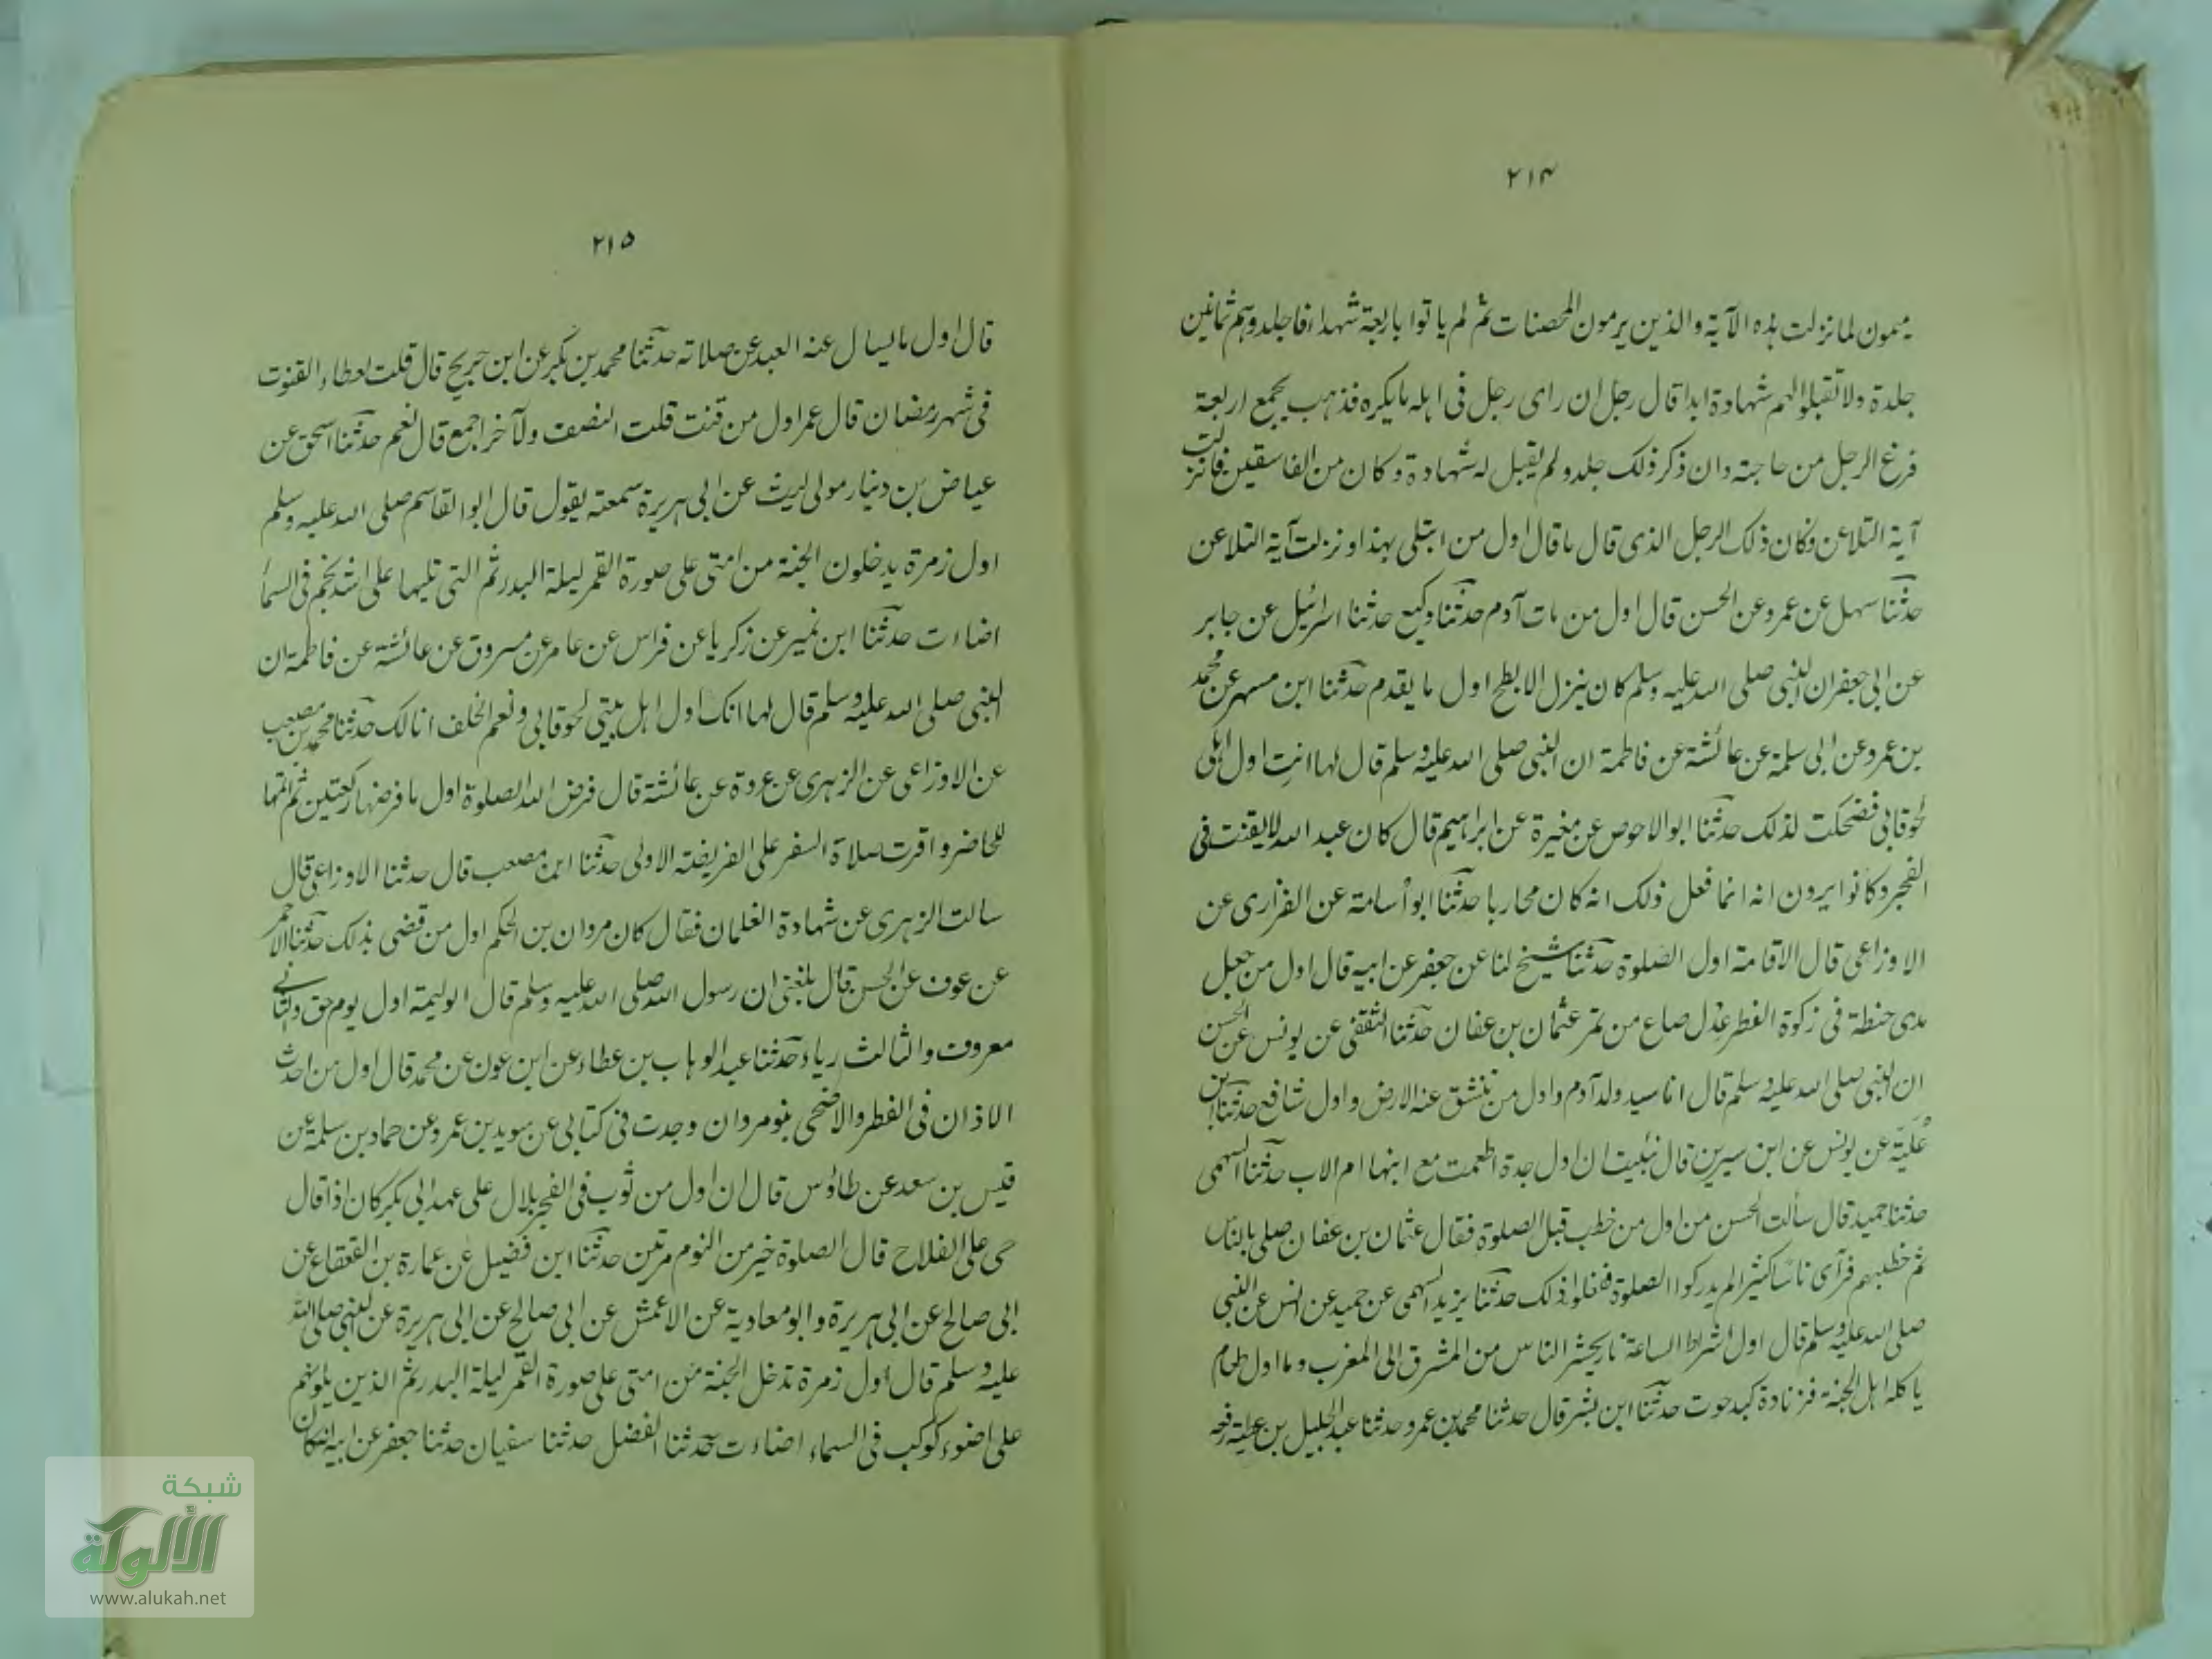 ٢١٤
ميمون لما نزلت هذه الآية والذين يرمون المحصنات ثم لم ياتوا باربعة شهداء فاجلدوهم ثمانين
جلدة ولا تقبلوا لهم شهادة ابدا قال رجل ان راى رجل فى اهله ما يكره فذهب يجمع اربعة
فرغ الرجل من حاجته وان ذكر ذلك جلد ولم يقبل له شهادة وكان من الفاسقين فانزلت
آية التلاعن وكان ذلك الرجل الذى قال ما قال اول من ابتلى بهذا ونزلت آية التلاعن
حدثنا سهل عن عمرو عن الحسن قال اول من مات آدم حدثنا وكيع حدثنا اسرائيل عن جابر
عن ابى جعفر ان النبى صلى الله عليه وسلم كان ينزل الابطح اول ما يقدم حدثنا ابن مسهر عن محمد
بن عمرو عن ابى سلمة عن عائشة عن فاطمة ان النبى صلى الله عليه وسلم قال لها انتِ اول اهلى
لحوقا بى فضحكت لذلك حدثنا ابو الاحوص عن مغيرة عن ابراهيم قال كان عبد الله لا يقنت فى
الفجر وكانوا يرون انه انما فعل ذلك انه كان محاربا حدثنا ابو أسامة عن الفزارى عن
الاوزاعى قال الاقامة اول الصلوة حدثنا شيخ لنا عن جعفر عن ابيه قال اول من جعل
مدى حنطة فى زكوة الفطر عِدْل صاع من تمر عثمان بن عفان حدثنا الثقفى عن يونس عن الحسن
ان النبى صلى الله عليه وسلم قال انا سيد ولد آدم واول من تنشق عنه الارض واول شافع حدثنا ابن
عُلَيّة عن يونس عن ابن سيرين قال نُبئيت ان اول جدة اطعمت مع ابنها ام الاب حدثنا السهمى
حدثنا حميد قال سألت الحسن من اول من خطب قبل الصلوة فقال عثمان بن عفان صلى بالناس
ثم خطبهم فرآى ناسًا كثيرا لم يدركوا الصلوة ففعلوا ذلك حدثنا يزيد السهمى عن حميد عن انس عن النبى
صلى الله عليه وسلم قال اول اشراط الساعة نار يحشر الناس من المشرق الى المغرب وما اول طعام
ياكله اهل الجنة فزنادة كبد حوت حدثنا ابن بشر قال حدثنا محمد بن عمرو حدثنا عبد الجليل بن عطية رفعه
٢١٥
قال اول ما يسال عنه العبد عن صلاته حدثنا محمد بن بكر عن ابن جريج قال قلت لعطاء القنوت
فى شهر رمضان قال عمر اول من قنت قلت النصف ولآخر اجمع قال نعم حدثنا اسحق عن
عياض بن دنيار مولى ليث عن ابى هريرة سمعته يقول قال ابو القاسم صلى الله عليه وسلم
اول زمرة يدخلون الجنة من امتى على صورة القمر ليلة البدر ثم التى تليها على اشد نجم فى السماء
اضاءت حدثنا ابن نمير عن زكريا عن فراس عن عامر عن مسروق عن عائشة عن فاطمة ان
النبى صلى الله عليه وسلم قال لها انك اول اهل بيتى لحوقا بى ونعم الخلف انا لك حدثنا محمد بن مصعب
عن الاوزاعى عن الزهرى عن عروة عن عائشة قال فرض الله الصلوة اول ما فرضها ركعتين ثم اتمها
للحاضر واقرت صلاة السفر على الفريضة الاولى حدثنا ابن مصعب قال حدثنا الاوزاعى قال
سالت الزهرى عن شهادة الغلمان فقال كان مروان بن الحكم اول من قضى بذلك حدثنا الاحمر
عن عوف عن الحسن قال بلغنى ان رسول الله صلى الله عليه وسلم قال الوليمة اول يوم حق والثانى
معروف والثالث رياء حدثنا عبد الوهاب بن عطاء عن ابن عون عن محمد قال اول من احدث
الاذان فى الفطر والاضحى بنو مروان وجدت فى كتابى عن سويد بن عمرو عن حماد بن سلمة عن
قيس بن سعد عن طاؤس قال ان اول من ثوب فى الفجر بلال على عهد ابى بكر كان اذا قال
حى على الفلاح قال الصلوة خير من النوم مرتين حدثنا ابن فضيل عن عمارة بن القعقاع عن
ابى صالح عن ابى هريرة وابو معادية عن الاعمش عن ابى صالح عن ابى هريرة عن النبى صلى الله
عليه وسلم قال أول زمرة تدخل الجنة من امتى على صورة القمر ليلة البدر ثم الذين يلونهم
على اضوء كوكب فى السماء اضاءت حدثنا الفضل حدثنا سفيان حدثنا جعفر عن ابيه انه كان
شبكة
الألوكة
www.alukah.net